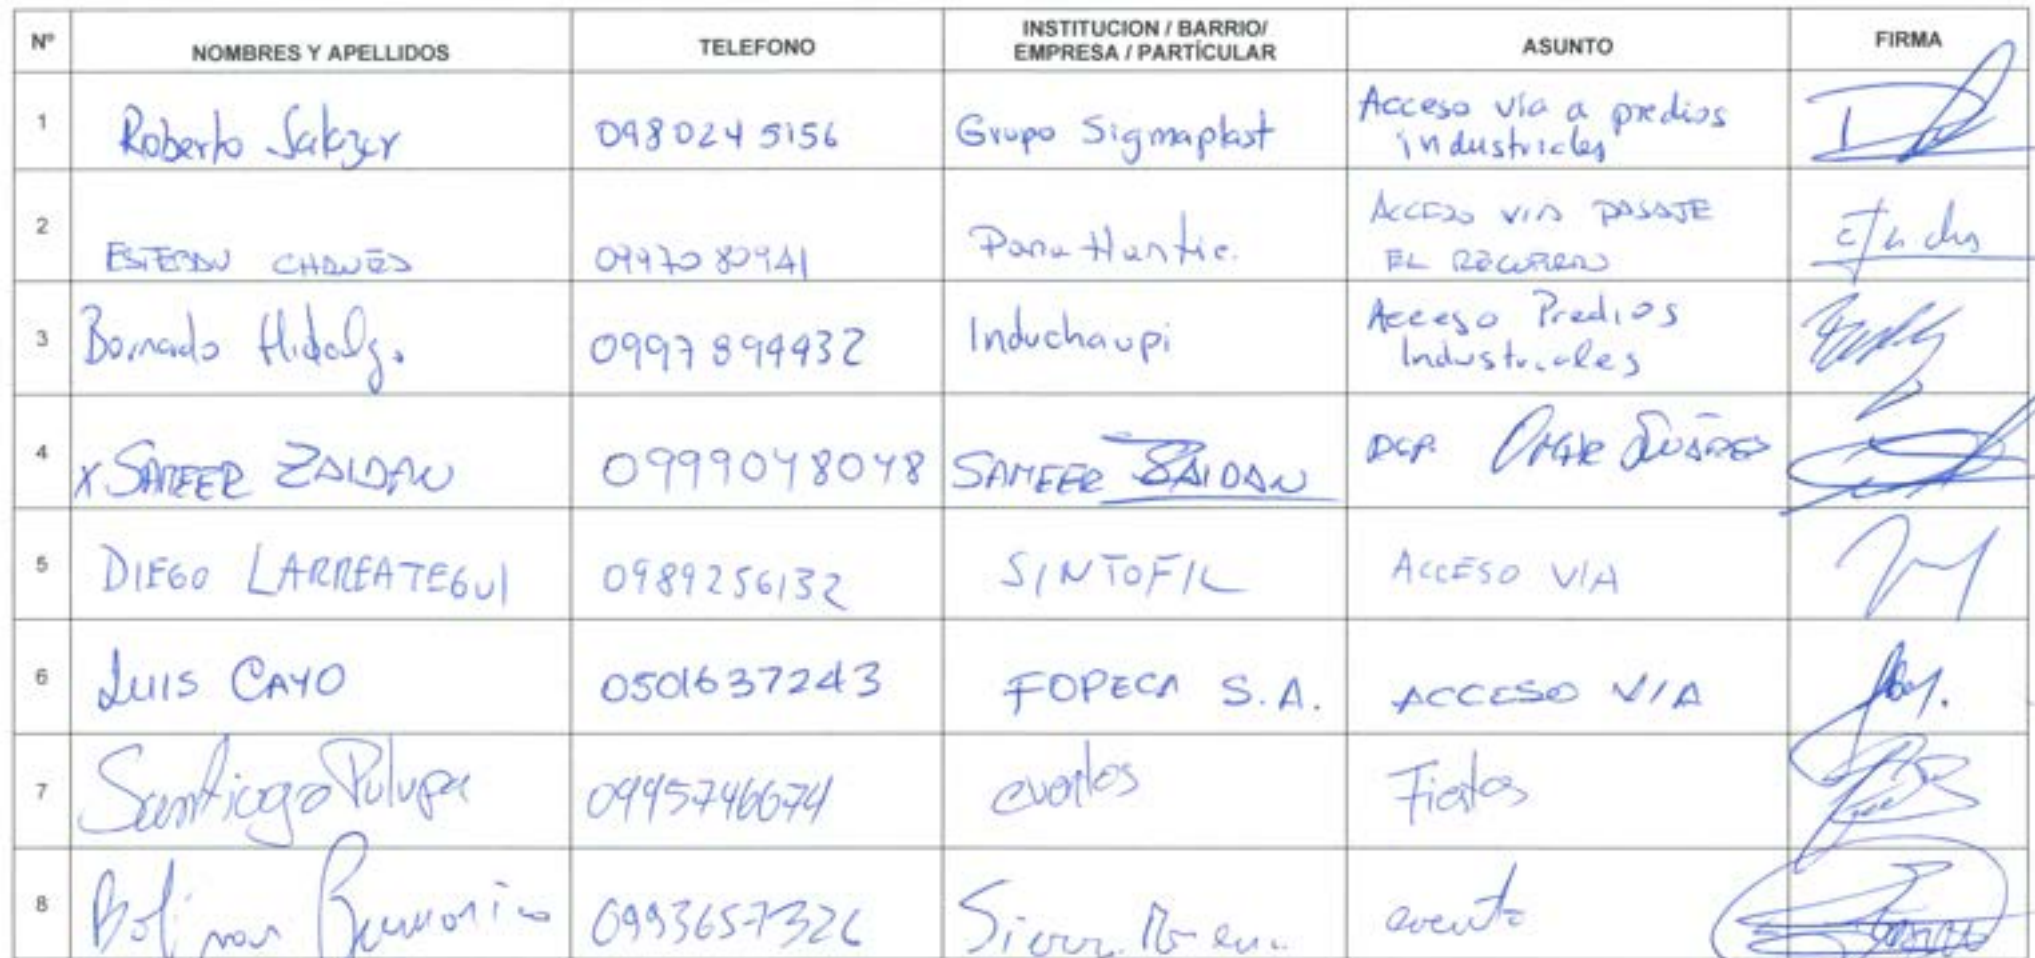 Nº NOMBRES Y APELLIDOS TELEFONO INSTITUCION / BARRIO/ EMPRESA / PARTÍCULAR ASUNTO FIRMA
1 Roberto Salazar 0980245156 Grupo Sigmaplast Acceso vía a predios
industriales
2 ESTEBAN CHAVES 0997080941 ACCESO VIA PASAJE
EL RECUERDO
3 Bernardo Hidalgo. 0997894432 Induchaupi Acceso Predios
Industriales
4 X SAMEER ZAIDAN 0999048048 SAMEER ZAIDAN OMAR
5 DIEGO LARREATEGUI 0989256132 SINTOFIL ACCESO VIA
6 LUIS CAYO 0501637243 FOPECA S.A. ACCESO VIA
7 Santiago Pulupa 0995746674 eventos Fiestas
8 0993657326 evento